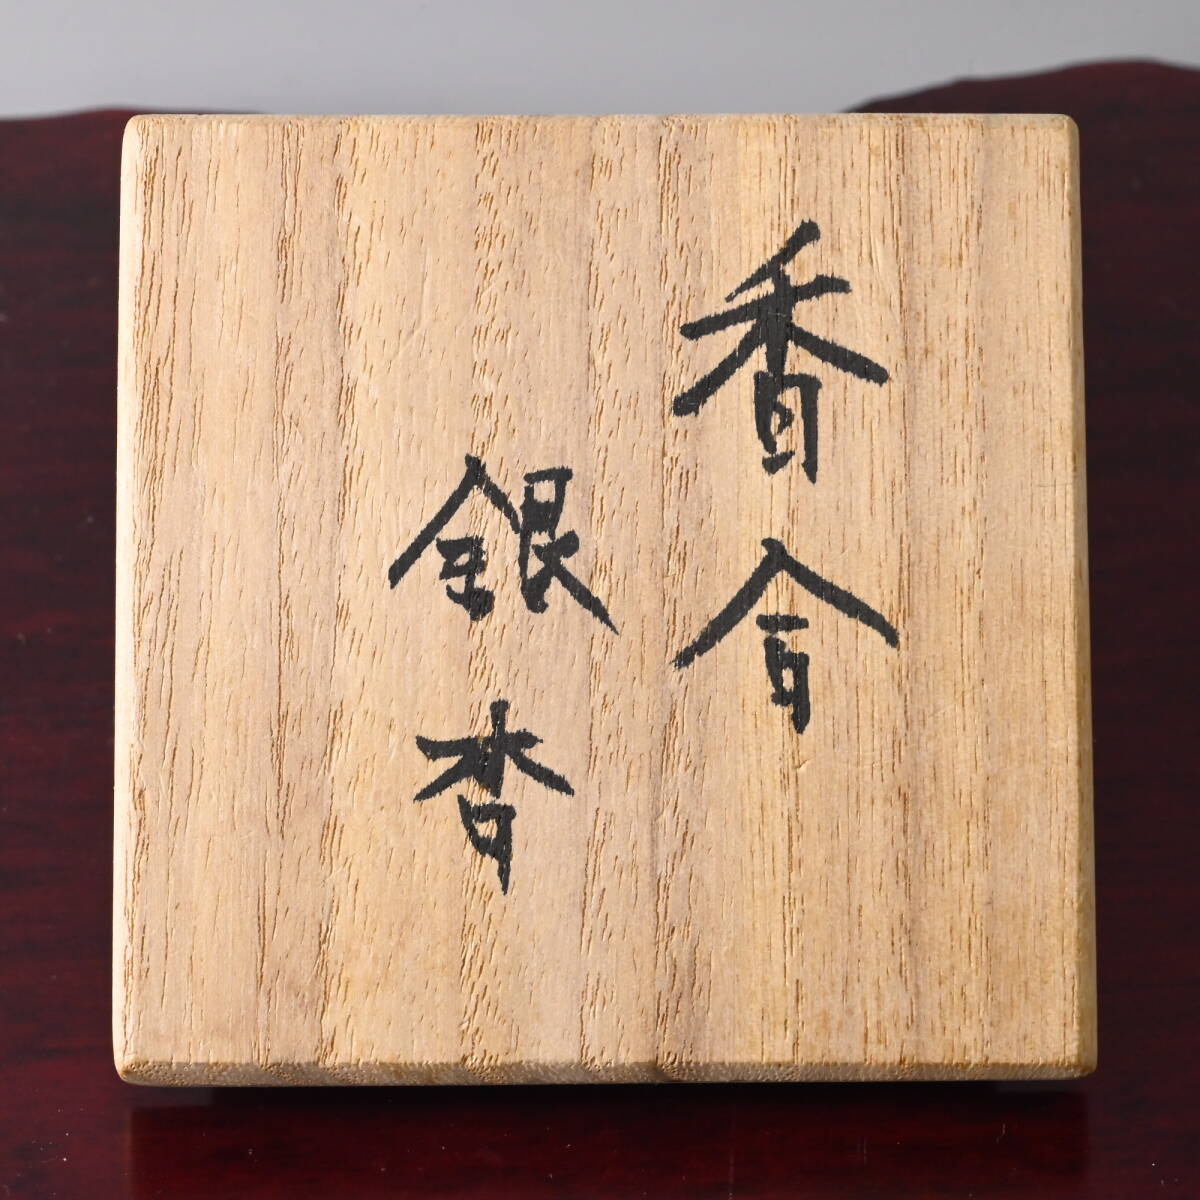 香合
銀杏